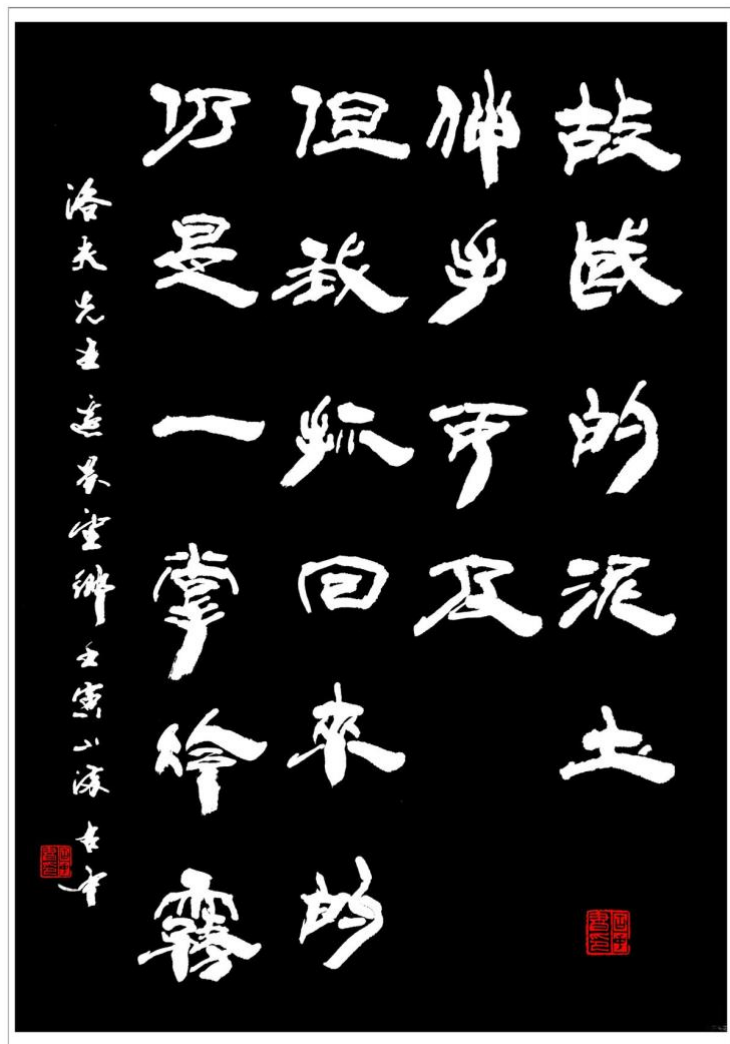 故國的泥土
伸手可及
但我抓回來的
仍是一掌冷霧
洛夫先生邊界望鄉壬寅